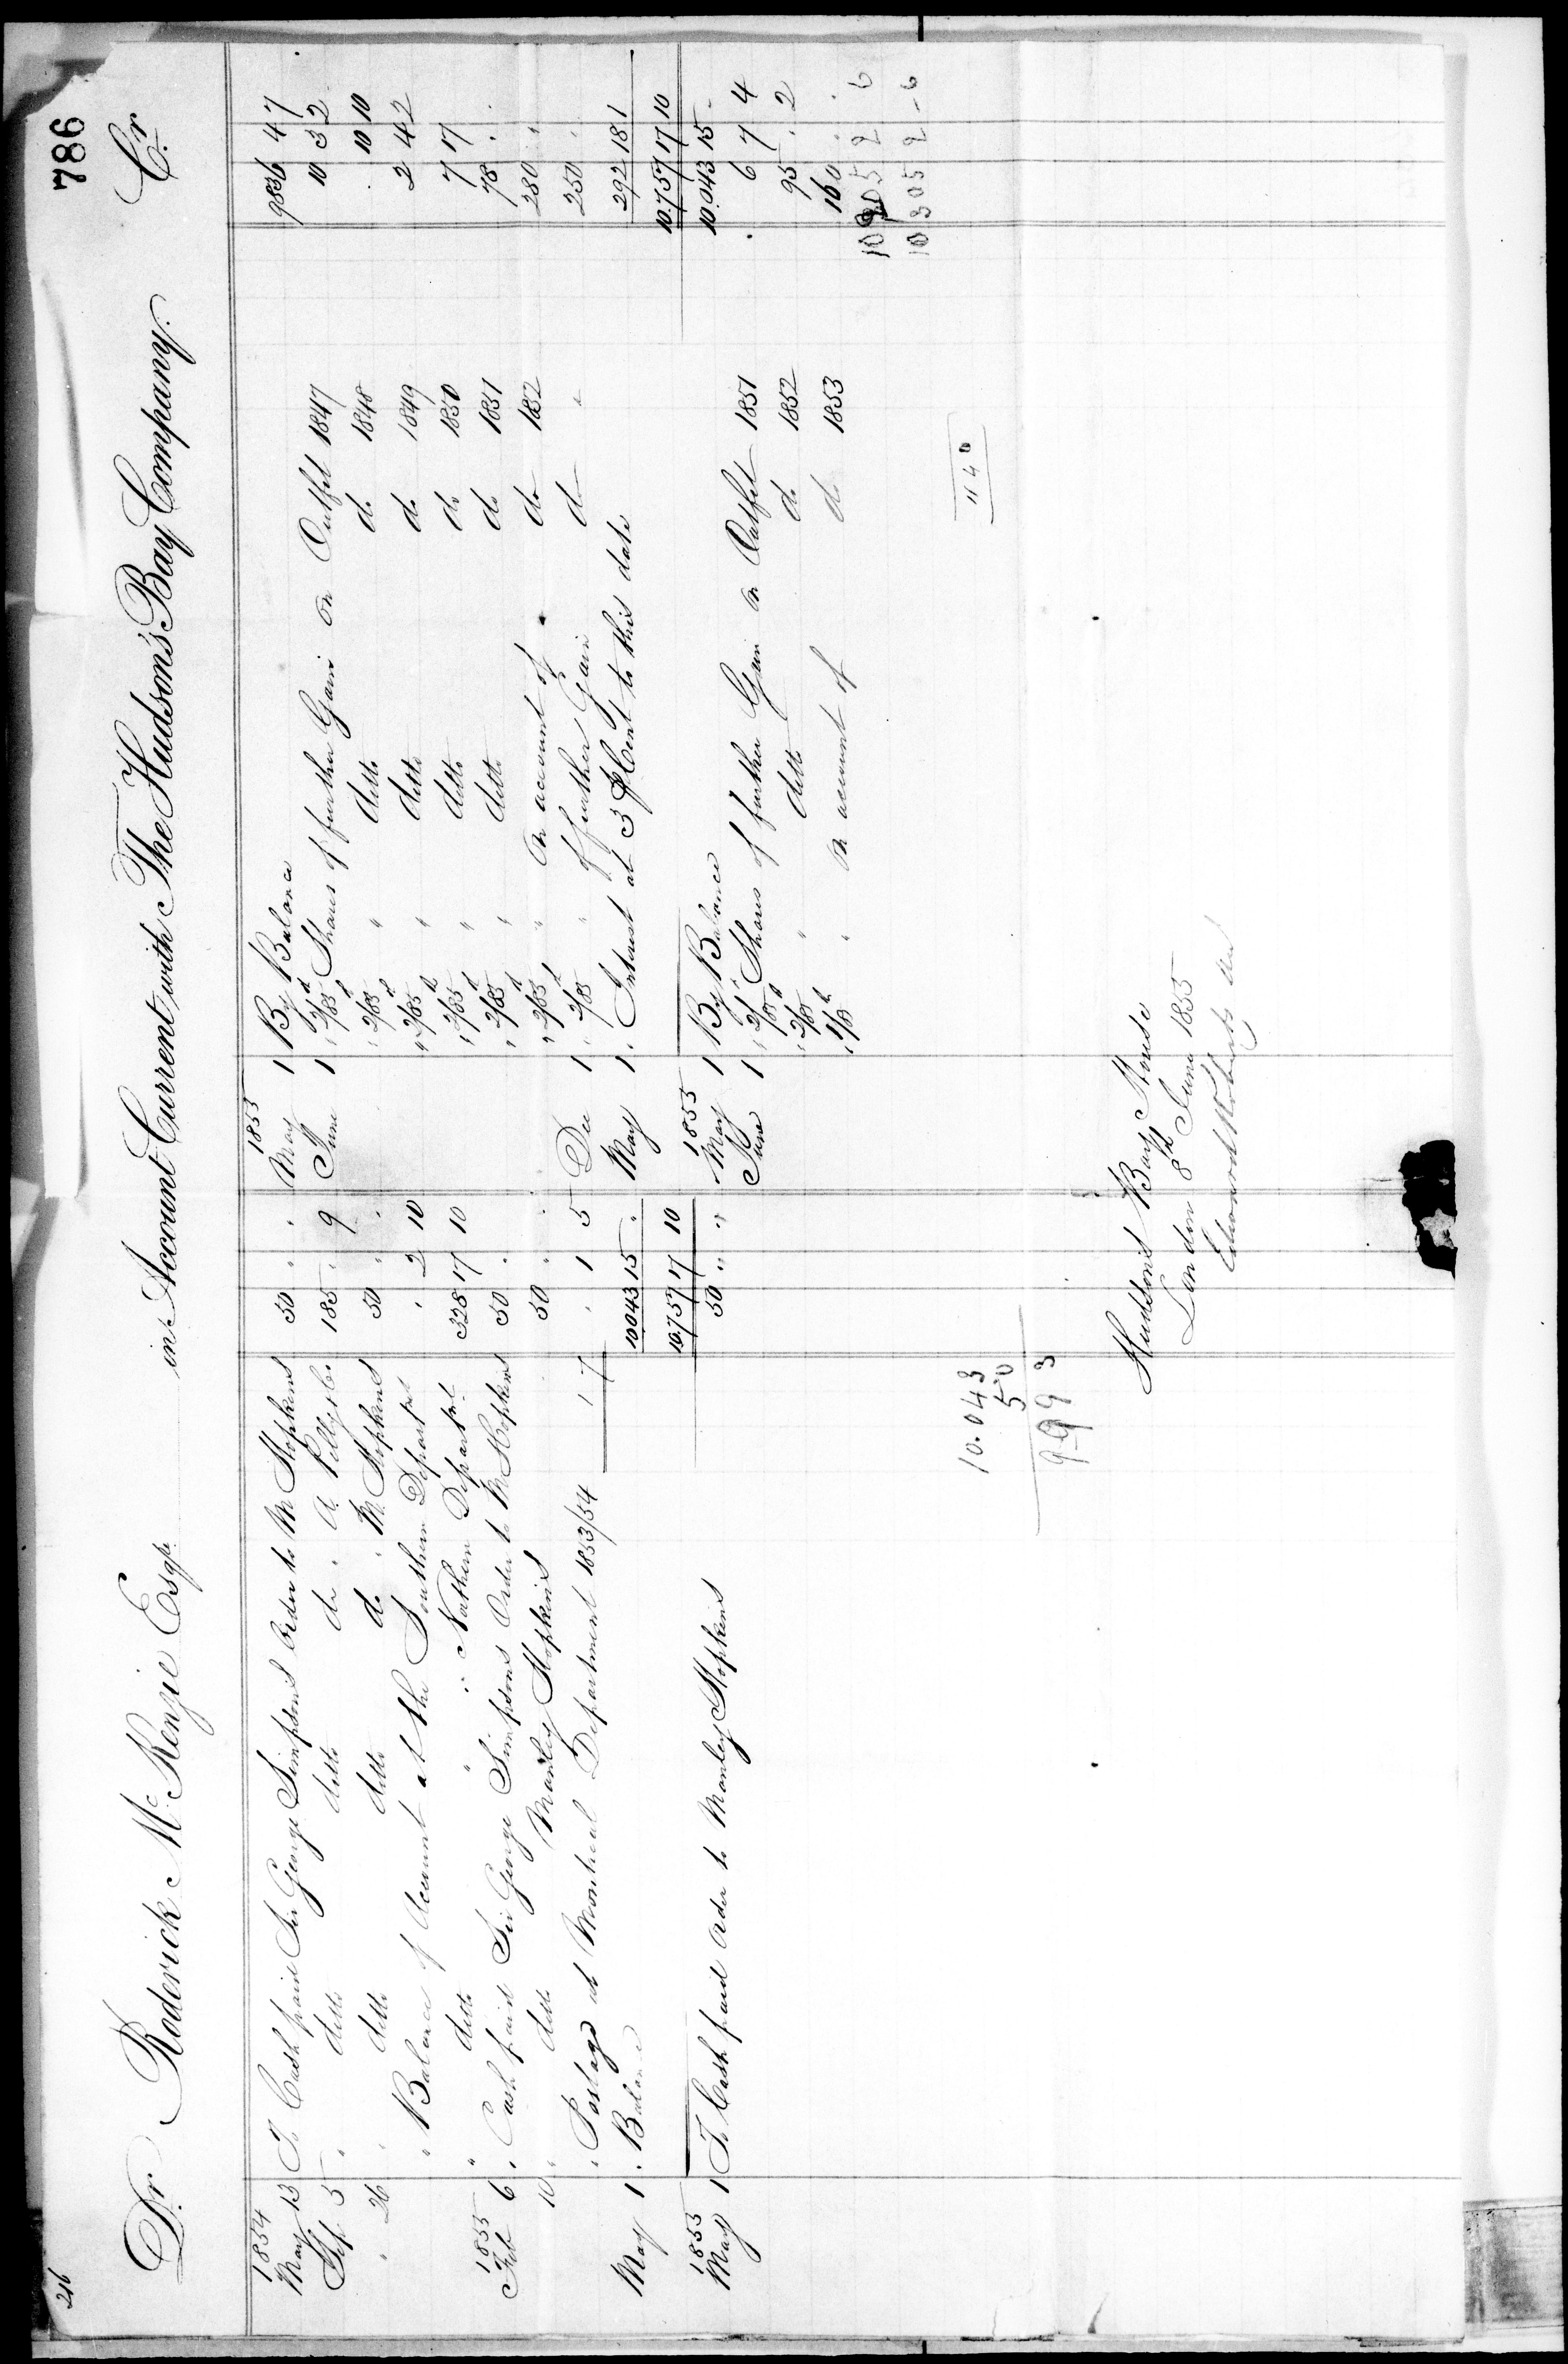 216
786
Dr Roderick McKenzie Esqr. in Account Current with The Hudson's Bay Company. Cr
1854
May 13 To Cash paid Sir George Simpson's Order to M Hopkins 50 " "
Sep 5 " ditto ditto do " A. Pelly & Co. 185 . 9
" 26 " ditto ditto do " M. Hopkins 50 " "
" Balance of Account at the Southern Departmt " 2 10
" ditto " " Northern Departmt. 328 17 10
1855
Feb 6 " Cash paid Sir George Simpsons Order to M Hopkins 50 " "
10 " ditto Manley Hopkins 50 " "
" Postage at Montreal Department 1853/54 1 7 " 1 5
May 1 " Balance 10043 15 "
10.757 17 10
1855
May 1 To Cash paid Order to Manley Hopkins 50 " "
10.043
50
9993
1853
May 1 By Balance 9836 4 7
June 1 " 2/85 d Shares of further Gain on Outfit 1847 10 3 2
" 2/85 d " ditto do 1848 . 10 10
" 2/85 d " ditto do 1849 2 4 2
" 2/85 d " ditto do 1850 7 17
" 2/85 d " ditto do 1851 78 "
" 2/85 d " on account of do 1852 280 "
Dec 1 " 2/85 " of further Gain do " 250 "
May 1 " Interest at 3 P Cent to this date 292 18 1
10.757 17 10
1855
May 1 By Balance 10.043 15 -
June 1 " 2/85 d Shares of further Gain on Outfit 1851 6 7 4
" 2/85 " ditto do 1852 95 . 2
" 1/85 " on account of do 1853 160 . .
10305 2 6
10305 2 - 6
Hudson's Bay House
London 8th June 1855
Edward Roberts